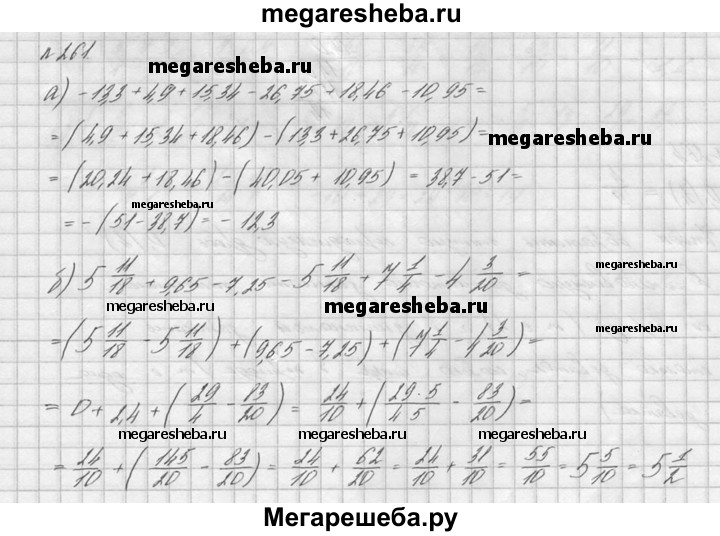 megaresheba.ru
№261.
megaresheba.ru
а) -13,3 + 4,9 + 15,34 - 26,75 + 18,46 - 10,95 =
= (4,9 + 15,34 + 18,46) - (13,3 + 26,75 + 10,95) =
megaresheba.ru
= (20,24 + 18,46) - (40,05 + 10,95) = 38,7 - 51 =
megaresheba.ru
= -(51 - 38,7) = -12,3
б) 5 11/18 + 9,65 - 7,25 - 5 11/18 + 7 1/4 - 4 3/20 =
megaresheba.ru
megaresheba.ru megaresheba.ru
= (5 11/18 - 5 11/18) + (9,65 - 7,25) + (7 1/4 - 4 3/20) =
megaresheba.ru
= 0 + 2,4 + (29/4 - 83/20) = 24/10 + (29·5/4·5 - 83/20) =
megaresheba.ru megaresheba.ru megaresheba.ru
= 24/10 + (145/20 - 83/20) = 24/10 + 62/20 = 24/10 + 31/10 = 55/10 = 5 5/10 = 5 1/2
Мегарешеба.ру